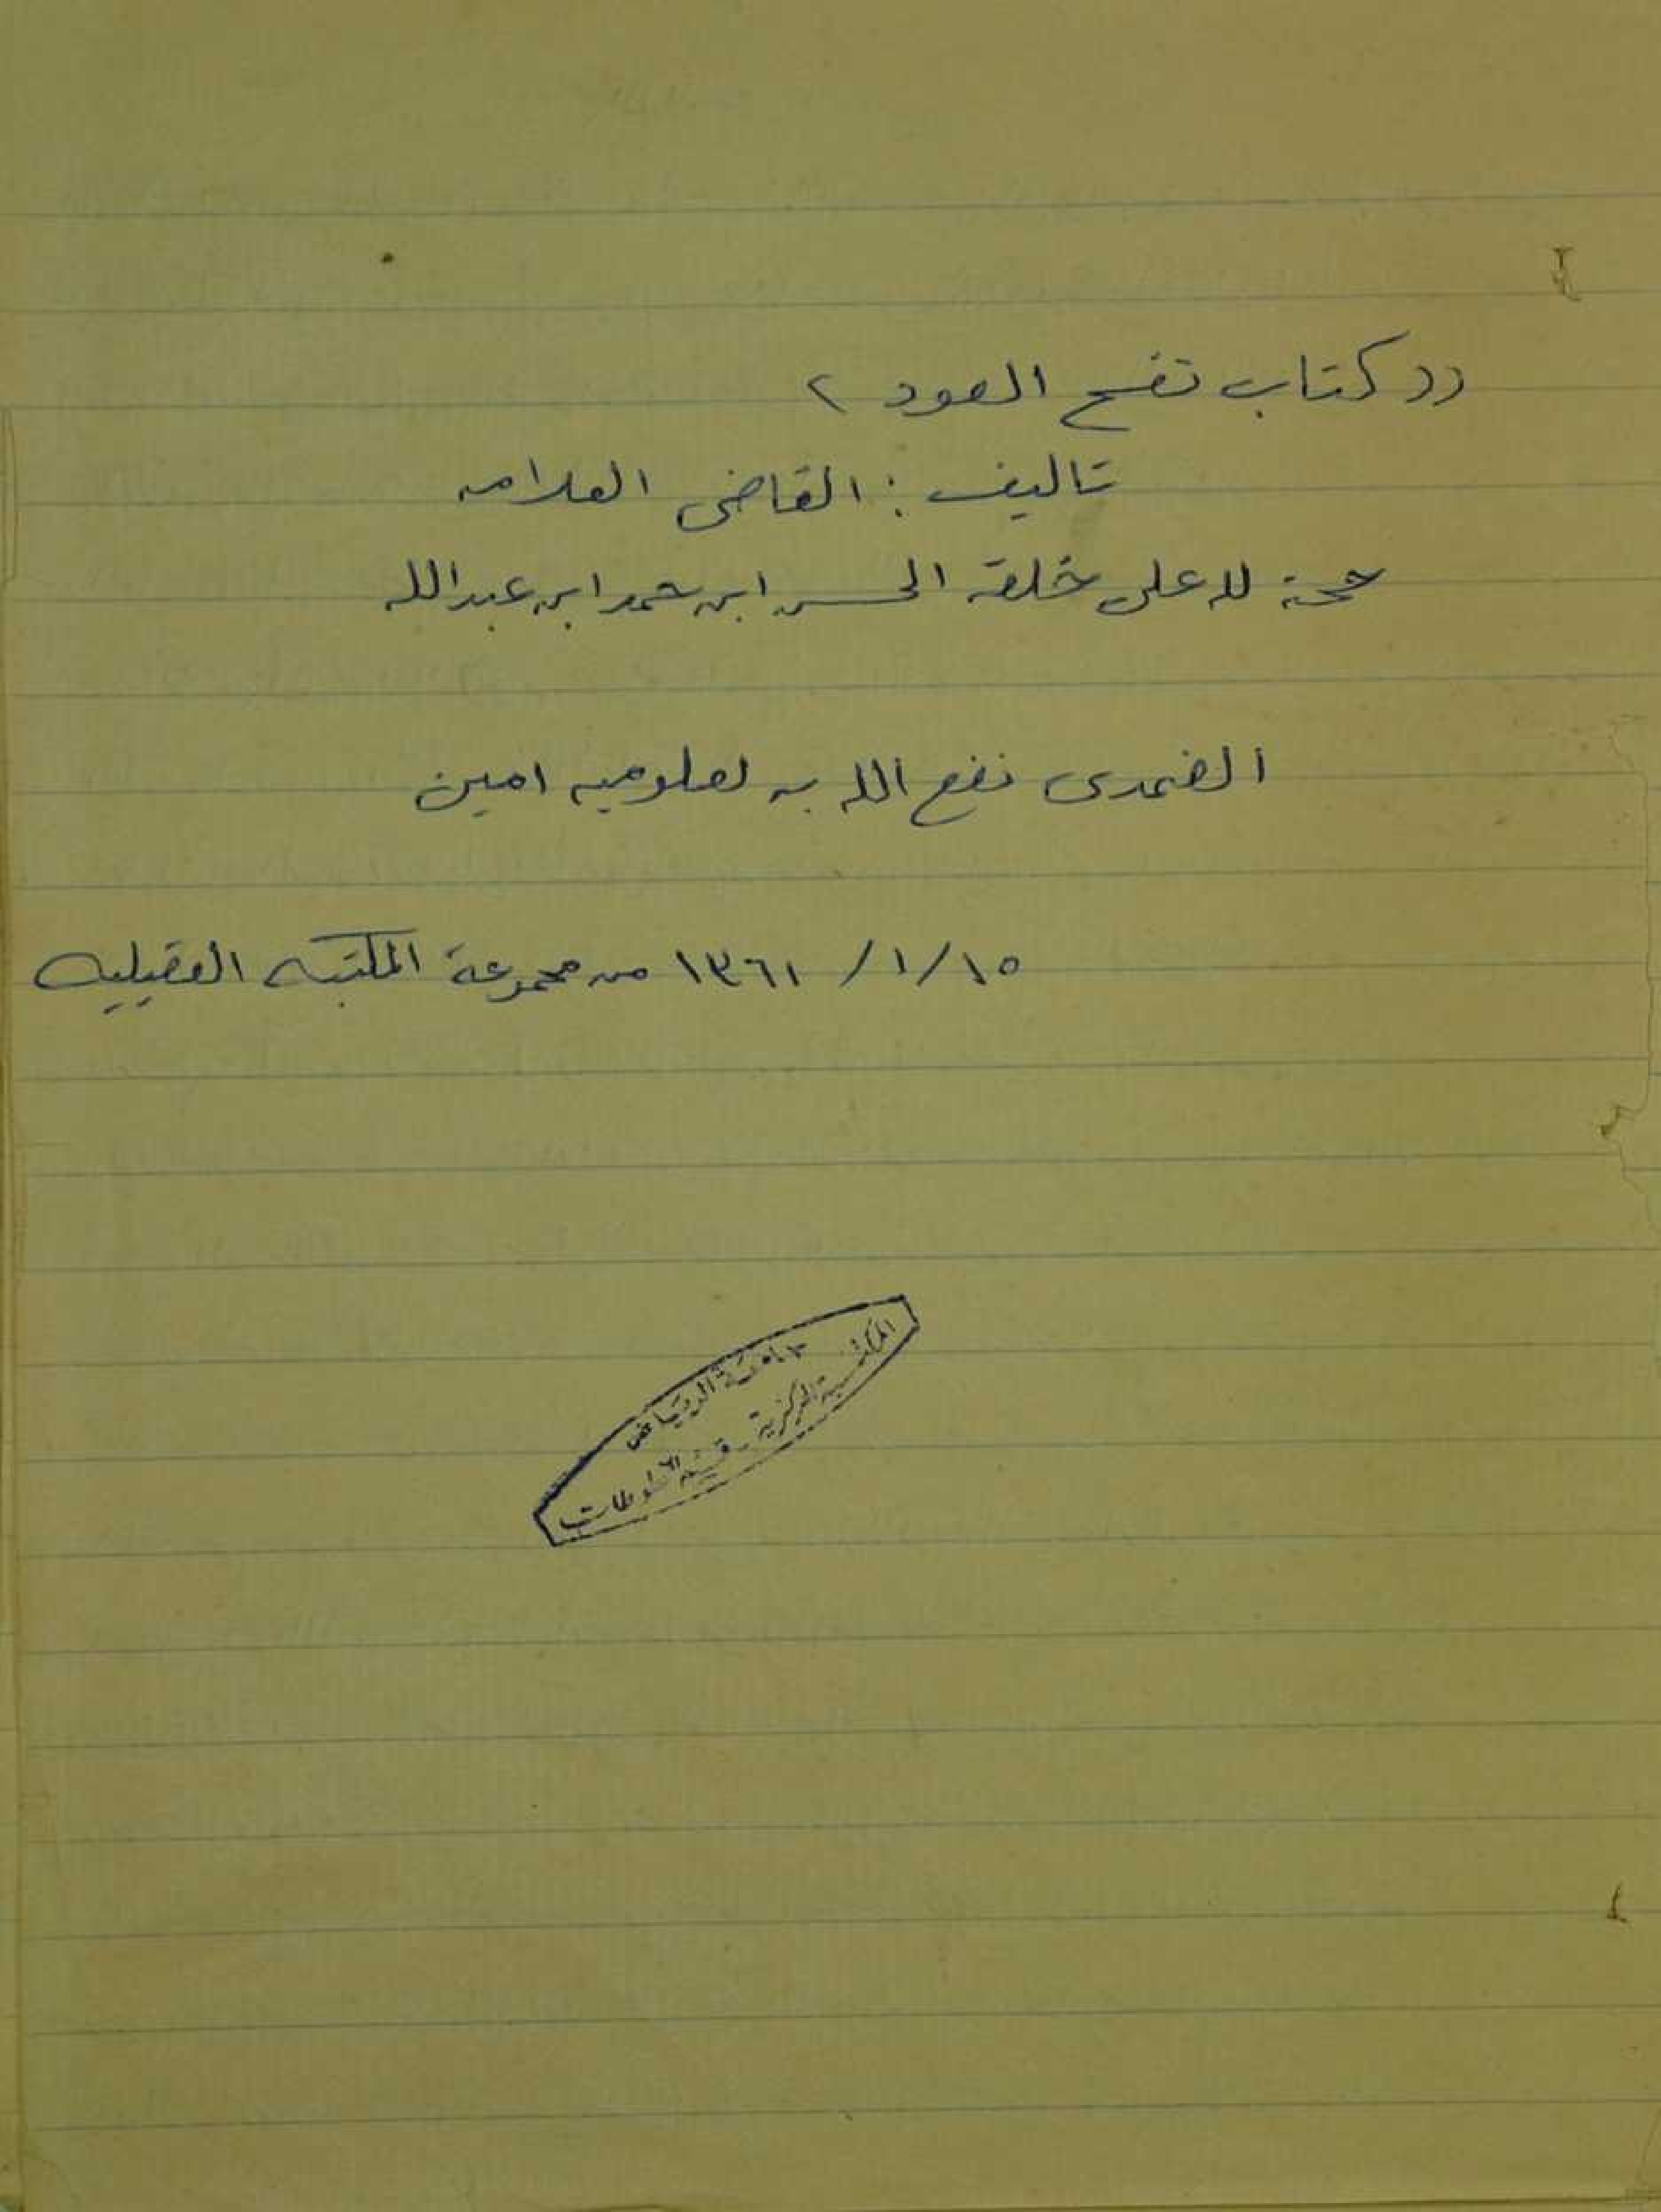 (( كتاب نفح العود ))
تاليف : القاضى العلامه
حجة لله على خلقه الحسن ابن حمد ابن عبدالله
الضمدى نفع الله به لعلوميه امين
١٥/ ١/ ١٣٦١ من مجموعة المكتبه العقيليه
جامعة الرياض
المكتبة المركزية - قسم المخطوطات